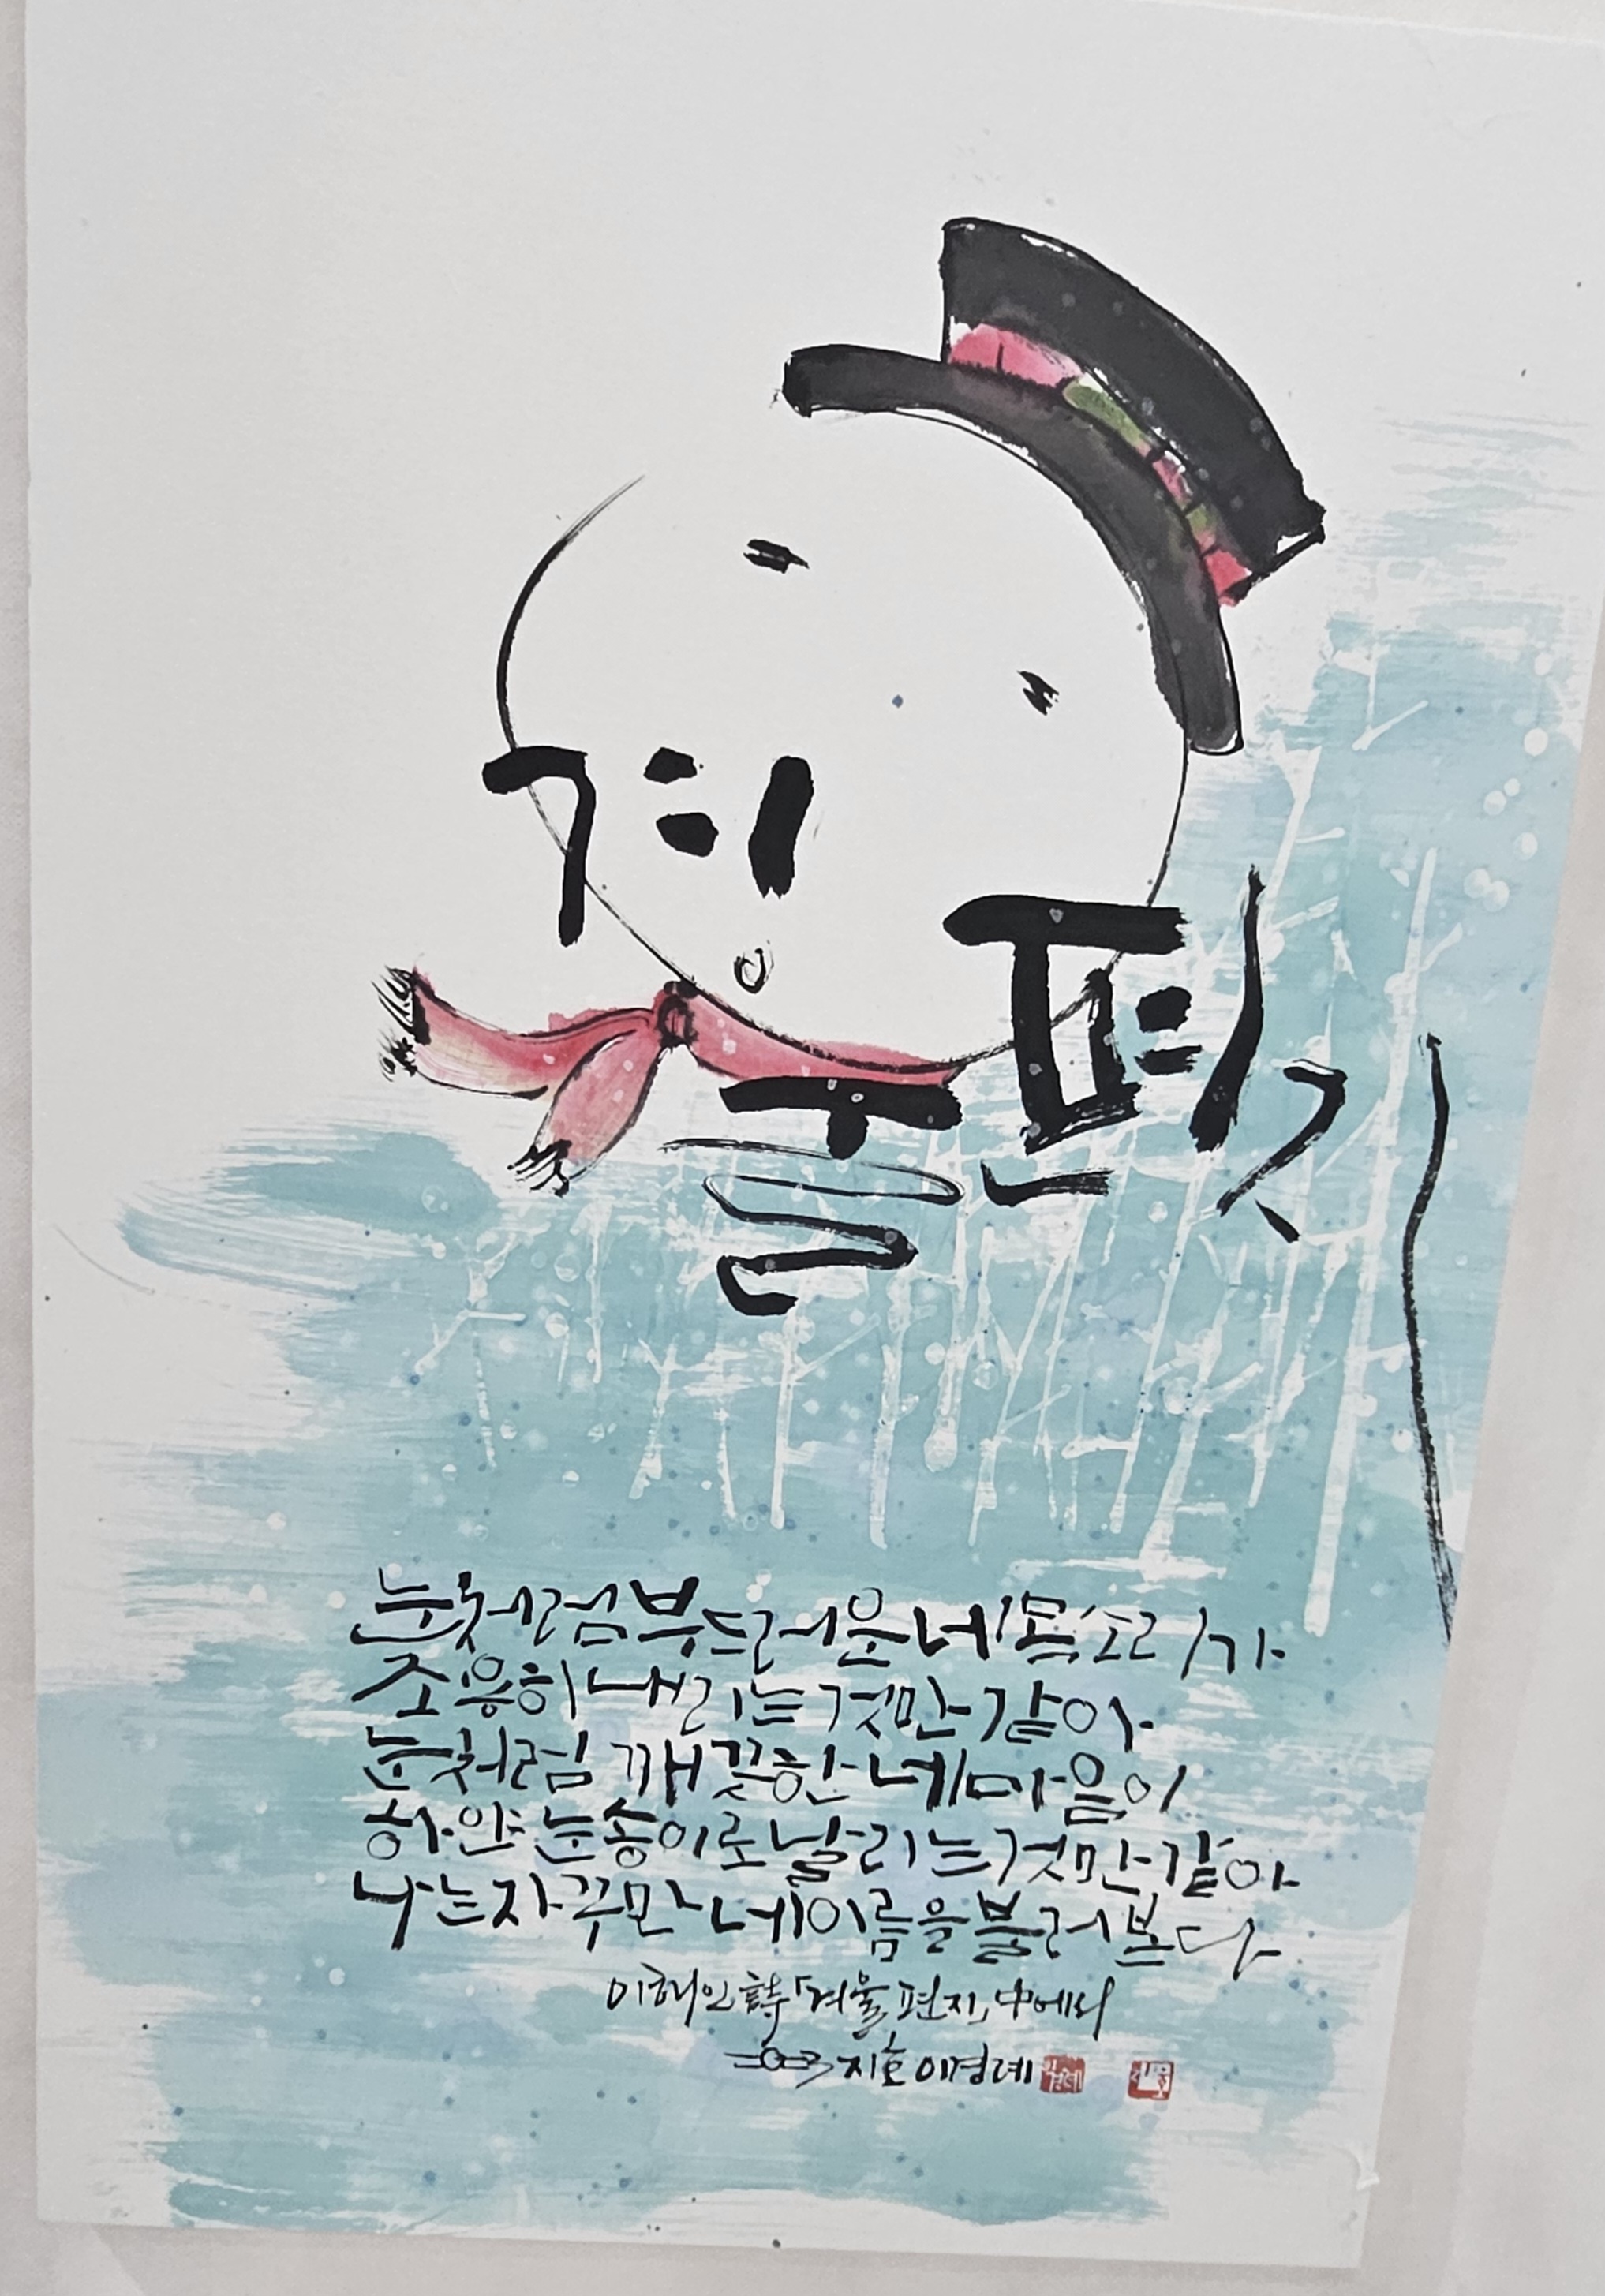 겨울편지
눈처럼 부드러운 네 목소리가
조용히 내리는 것만 같아
눈처럼 깨끗한 네 마음이
하얀 눈송이로 날리는 것만 같아
나는 자꾸만 네 이름을 불러본다
이해인 詩「겨울 편지」中에서
지호 이경례